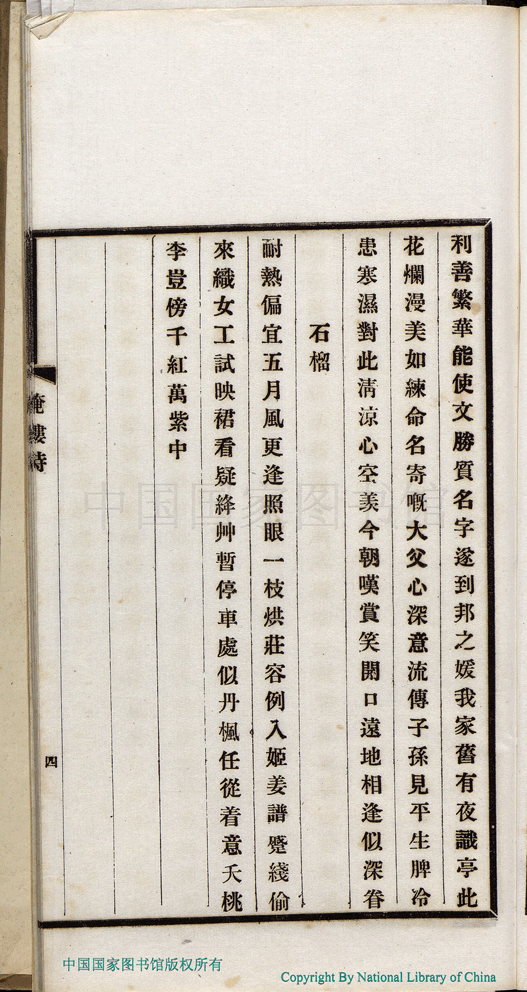 利善繁華能使文勝質名字遂到邦之媛我家舊有夜識亭此
花爛漫美如練命名寄嘅大父心深意流傳子孫見平生脾冷
患寒濕對此清涼心空羨今朝嘆賞笑開口遠地相逢似深眷
石榴
耐熱偏宜五月風更逢照眼一枝烘莊容例入姬姜譜蹙綫偷
來織女工試映裙看疑絳艸暫停車處似丹楓任從着意夭桃
李豈傍千紅萬紫中
縷詩
四
中国国家图书馆
中国国家图书馆版权所有
Copyright By National Library of China